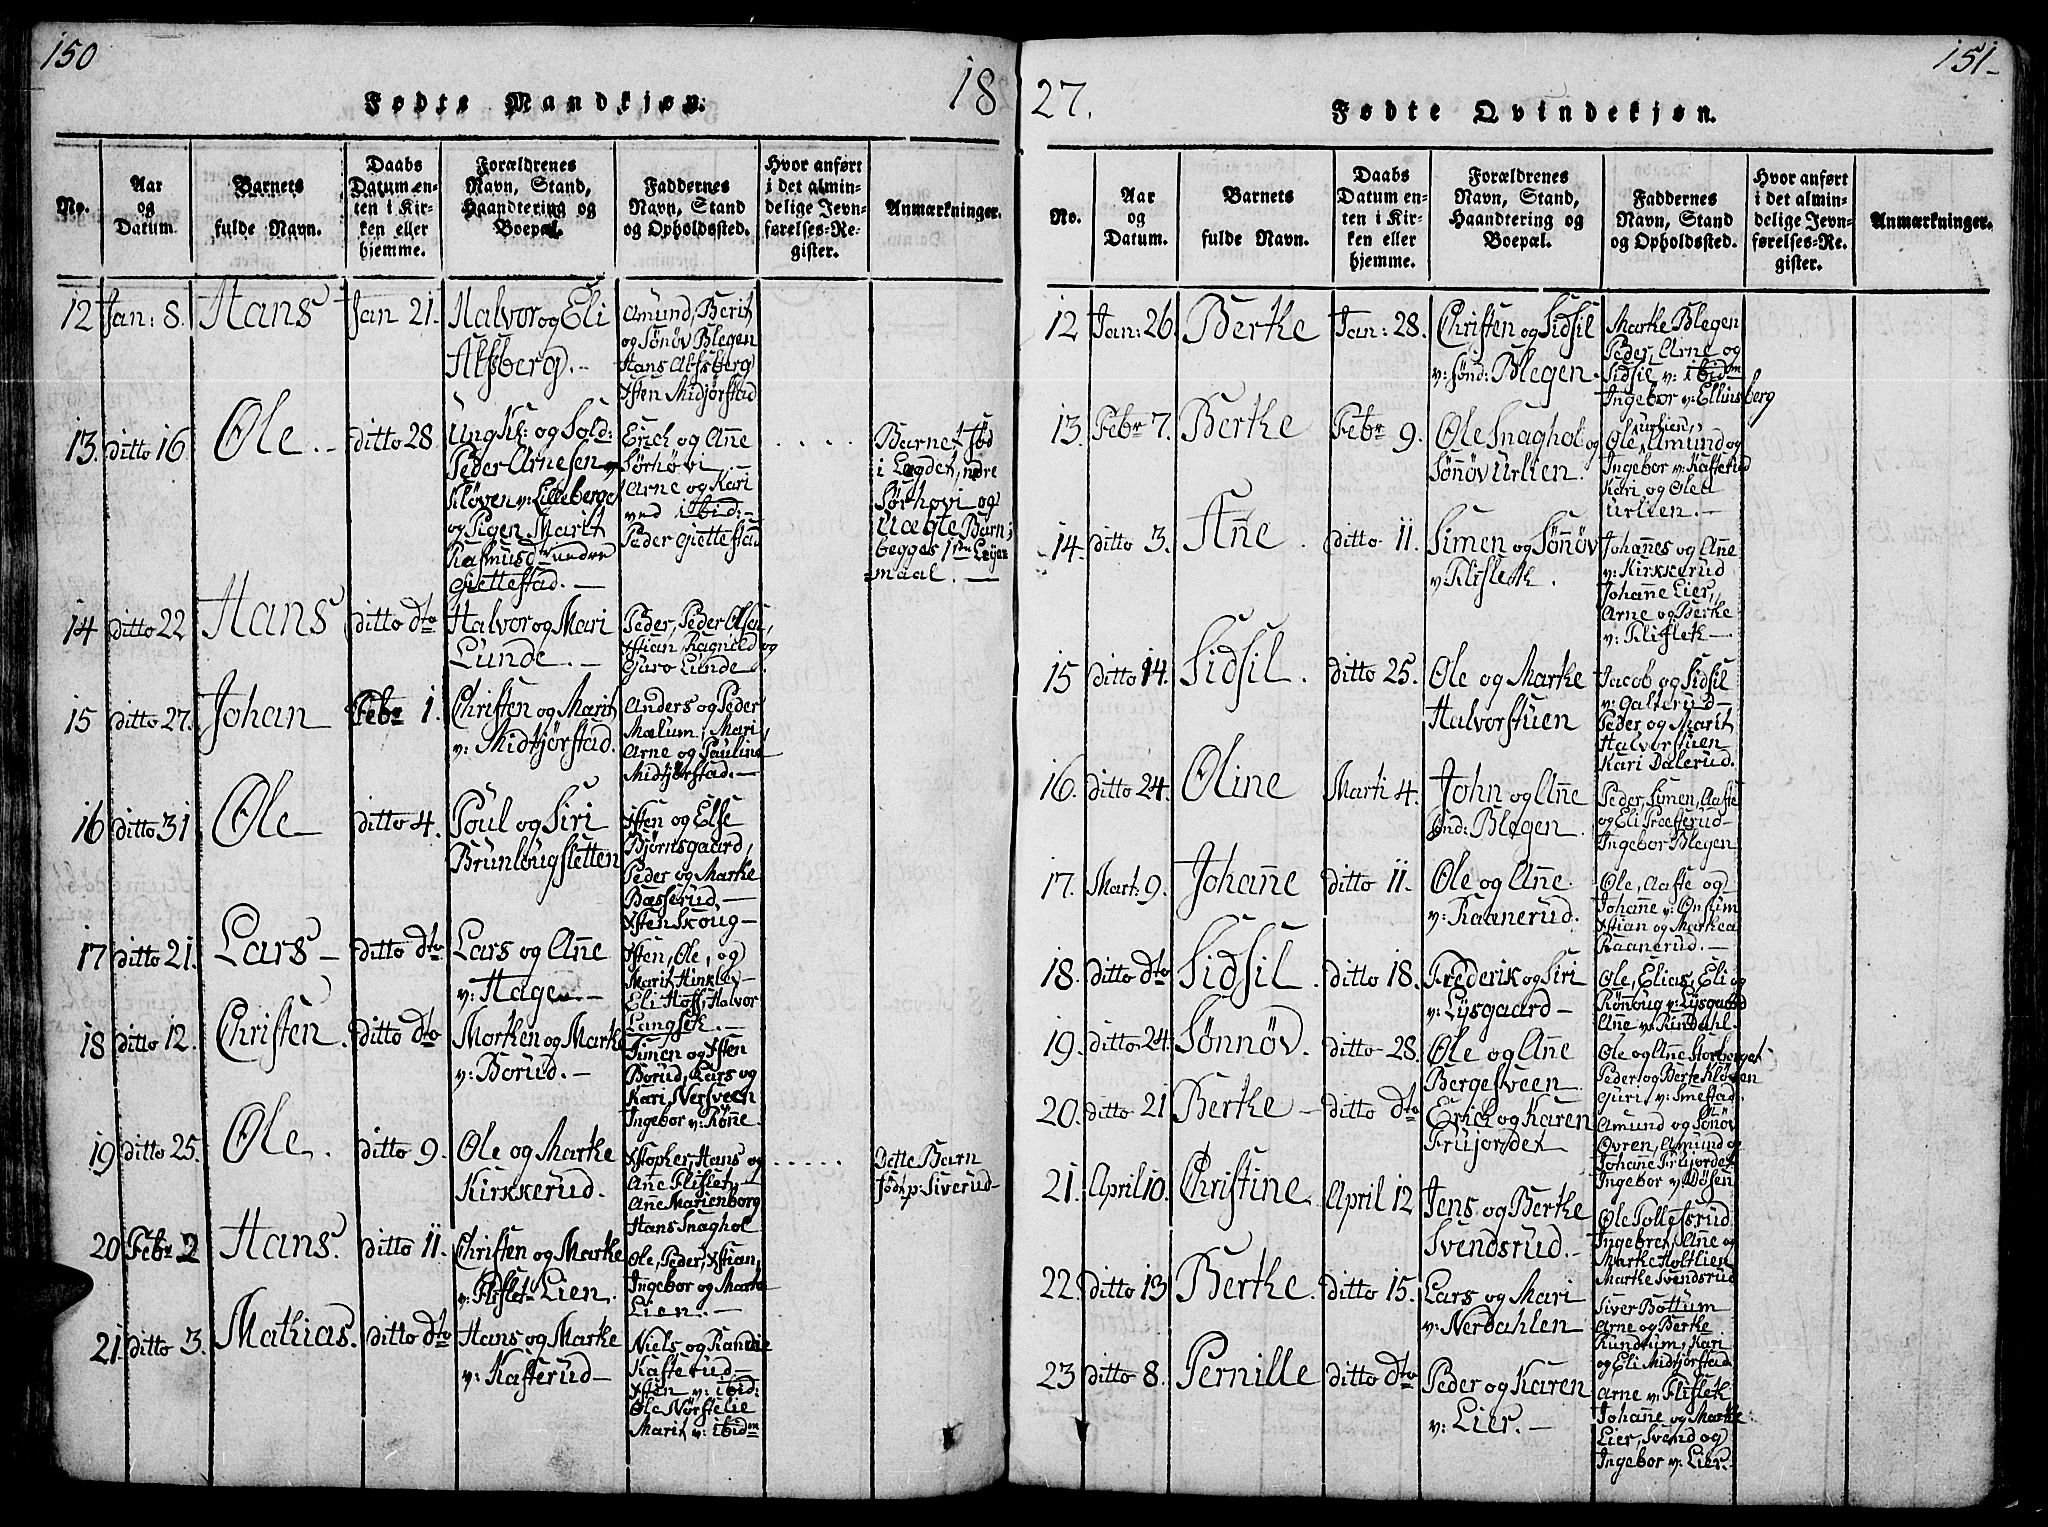 150
18
Fødte Mandkjøn.
No.
Aar
og
Datum.
Barnets
fulde Navn.
Daabs
Datum en-
ten i Kir-
ken eller
hjemme.
Forældrenes
Navn, Stand,
Haandtering og
Boepæl.
Faddernes
Navn, Stand
og Opholdssted.
Hvor anført
i det almin-
delige Jevn-
førelses-Re-
gister.
Anmærkninger.
12 Jan: 8. Hans Jan 21. Halvor og Eli
Alfsberg.
Amund, Berit
og Sønøv Blegen
Hans Alfsberg
Xsten Midjørstad
13. ditto 16 Ole. ditto 28 Ung K: og Sold:
Peder Arnesen
Kløven v: Lilleberget
og Pigen Marit
Rasmusdtr nedre
Giettestad.
Erich og Añe
Sørhovi
Arne og Kari
ved ibid:
Peder Giettestad
Barnet fød
i Lægdet, nere
Sørhovi og
Uægte Barn,
begges 1ste Leyer
maal.
14 ditto 22 Hans ditto dto Halvor og Mari
Lunde.
Peder, Peder Olsen,
Xstian, Ragnild og
Guro Lunde.
15 ditto 27. Johan Febr 1. Christen og Marit
v: Midtjørstad.
Anders og Peder
Mælum, Mari,
Arne og Pauline
Midtjørstad.
16 ditto 31 Ole ditto 4. Poul og Siri
Brunlougsletten
Xsten og Else
Bjørnsgaard,
Peder og Marke
Bæsserud,
Xsten Skoug
17 ditto 21. Lars ditto dto Lars og Añe
v: Hage
Xsten, Ole, og
Marit Hinkley
Eli Hoff, Halvor
Langsek.
18 ditto 12. Christen. ditto dto Morten og Marke
v: Borud.
Simen og Xsten
Borud, Lars og
Kari Nersveen
Ingebor v: Røñe.
19 ditto 25. Ole. ditto 9. Ole og Marke
Kirkkerud.
Xstopher, Hans og
Añe Flislet,
Añe Marienborg
Hans Snaghol
Dette Barn
fød p: Siverud
20 Febr 2 Hans. ditto 11. Christen og Marke
v: Flislet Lien.
Ole, Peder, Xstian,
Ingebor og Marke
Lien.
21 ditto 3. Mathias. ditto dto Hans og Marke
v: Kafterud
Niels og Randi
Kafterud
Xsten v: ibid:
Ole Nørstelie
Marit v: ibidm
27.
151
Fødte Qvindekjøn.
No.
Aar
og
Datum.
Barnets
fulde Navn.
Daabs
Datum en-
ten i Kir-
ken eller
hjemme.
Forældrenes
Navn, Stand,
Haandtering og
Boepæl.
Faddernes
Navn, Stand
og Opholdssted.
Hvor anført
i det almin-
delige Jevn-
førelses-Re-
gister.
Anmærkninger.
12 Jan: 26. Berthe Jan: 28. Christen og Sidsil
v: sønd: Blegen.
Marke Blegen
Peder, Arne og
Sidsil v: ibidm
Ingebor v: Ellinsberg
13. Febr 7. Berthe Febr 9. Ole Snaghol og
Søñøv Urlien.
Urlien,
Ole, Amund og
Ingebor v: Kafterud
Kari og Olea
Urlien.
14. ditto 3. Añe. ditto 11. Simen og Søñøv
v Flislet.
Johañes og Añe
v: Kirkkerud
Johañe Lier,
Arne og Berte
v: Flislet
15 ditto 14. Sidsil. ditto 25. Ole og Marke
Halvorstuen
Jacob og Sidsil
v: Galterud
Peder og Marit
Halvorstuen
Kari Dalerud.
16. ditto 24. Oline Marti 4. John og Añe
sønd: Blegen.
Peder, Simen, Aafte
og Eli Præsterud
Ingebor Blegen
17. Mart. 9. Johañe ditto 11. Ole og Añe
v: Raanerud.
Ole, Aafte og
Johañe v: Onsum
Xstian og Markea
Raanerud.
18. ditto dto Sidsil. ditto 18. Frederik og Siri
v: Lysgaard
Ole, Elias, Eli og
Rønoug v: Lysgaard
Añe v: Rindahl.
19. ditto 24. Sønnøv. ditto 28. Ole og Añe
Bergesveen
Ole og Añe Storberget
Peder og Berte Kløven
Guri v: Smestad.
20. ditto 21 Berthe ditto dto Erich og Karen
Frujordet
Amund og Søñøv
Øvren, Amund og
Johañe Frujordet
Ingebor v: Døsen
21. April 10. Christine. April 12 Jens og Berthe
Svendsrud.
Ole Tollefsrud
Ingebret, Añe og
Marke Holtlien
Marke Svendsrud
22. ditto 13 Berthe. ditto 15. Lars og Mari
v: Nerdahlen
Siver Bottum
Arne og Berthe
Rundtum, Kari
og Eli Midtjørstad
23 ditto 8. Pernille ditto dto Peder og Karen
v: Lier.
Arne v: Flislet
Johañe og Marke
Lier, Svend og
Ingebor v: Lier.